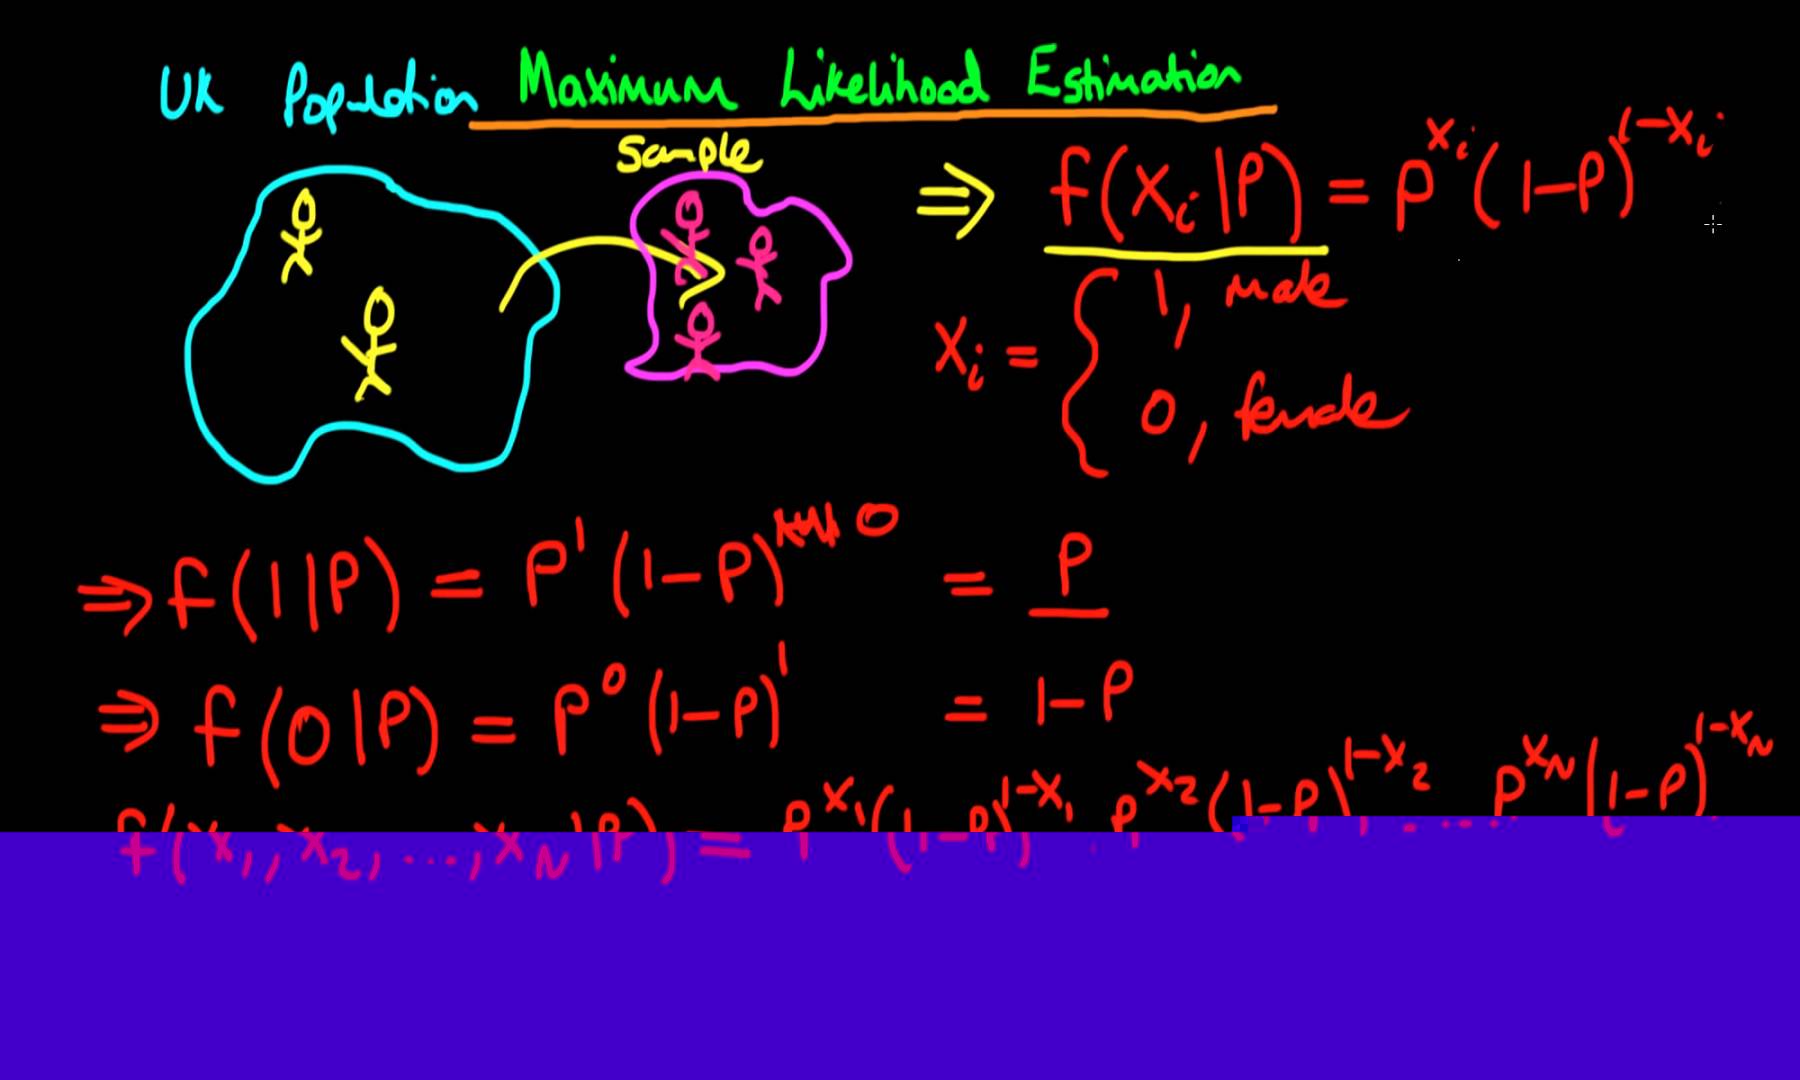 UK Population Maximum Likelihood Estimation
Sample
⇒ f(xᵢ|P) = P^xᵢ (1-P)^1-xᵢ
xᵢ = { 1, male
0, female
⇒ f(1|P) = P^1 (1-P)^0 = P
⇒ f(0|P) = P^0 (1-P)^1 = 1-P
f(x₁, x₂, ..., x_N|P) = P^x₁ (1-P)^1-x₁ . P^x₂ (1-P)^1-x₂ ..... P^x_N (1-P)^1-x_N